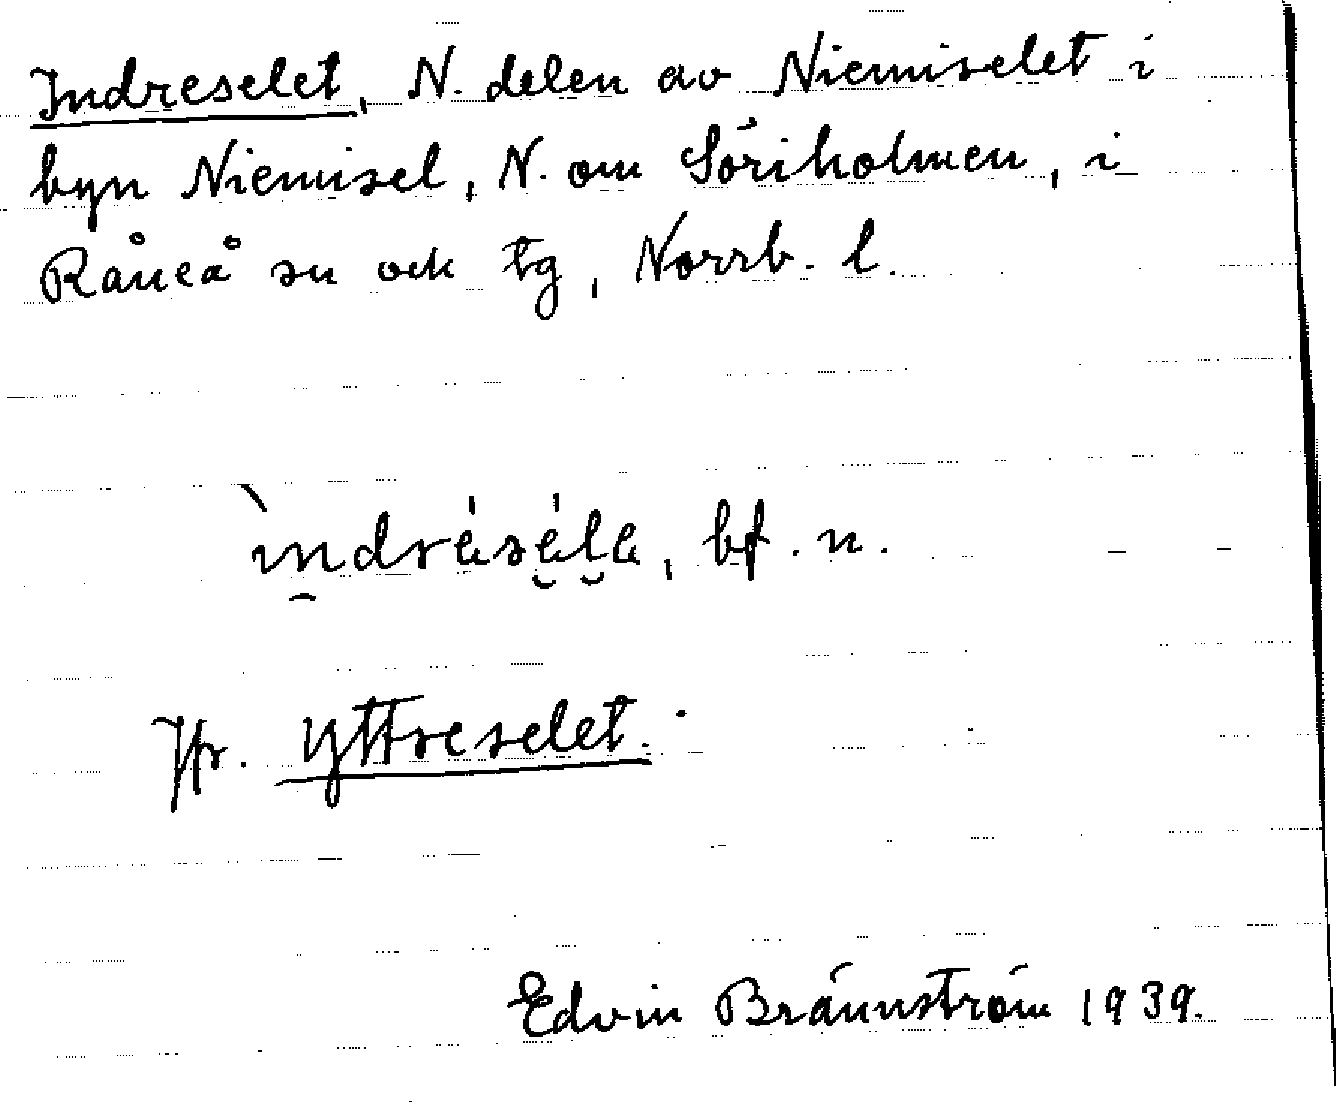 Indreselet, N. delen av Niemiselet i
byn Niemisel, N. om Söriholmen, i
Råneå sn ock tg, Norrb. l.
bf. n.
Jfr. Yttreselet.
Edvin Brännström 1939.